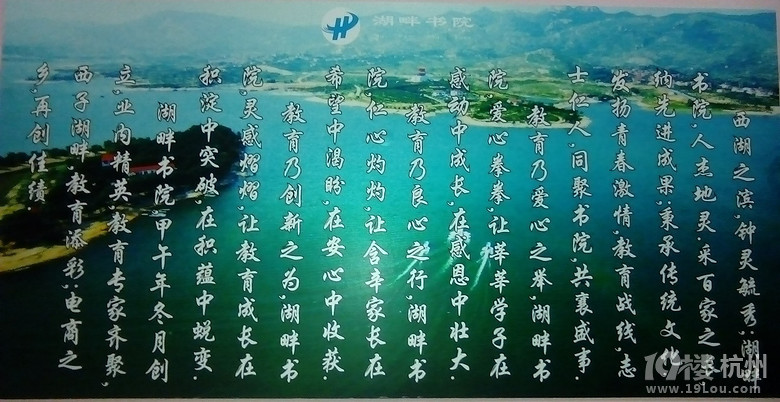 湖畔书院
西湖之滨,钟灵毓秀;湖畔
书院,人杰地灵.采百家之长,
纳先进成果,秉承传统文化,
发扬青春激情.教育战线,志
士仁人,同聚书院,共襄盛事.
教育乃爱心之举,湖畔书
院,爱心拳拳,让莘莘学子在
感动中成长,在感恩中壮大.
教育乃良心之行,湖畔书
院,仁心灼灼,让含辛家长在
希望中渴盼,在安心中收获.
教育乃创新之为,湖畔书
院,灵感熠熠,让教育成长在
积淀中突破,在积蕴中蜕变.
湖畔书院,甲午年冬月创
立,业内精英,教育专家齐聚,
西子湖畔,教育添彩;电商之
乡,再创佳绩.
19楼杭州
www.19lou.com